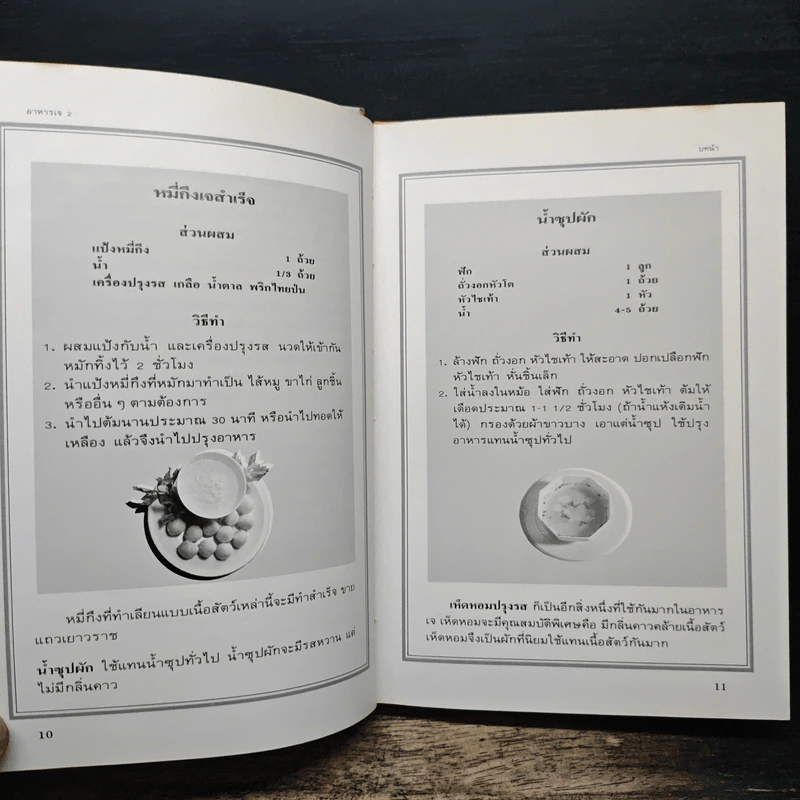 อาหารเจ 2
หมี่กึงเจสำเร็จ
ส่วนผสม
แป้งหมี่กึง 1 ถ้วย
น้ำ 1/3 ถ้วย
เครื่องปรุงรส เกลือ น้ำตาล พริกไทยป่น
วิธีทำ
1. ผสมแป้งกับน้ำ และเครื่องปรุงรส นวดให้เข้ากัน
หมักทิ้งไว้ 2 ชั่วโมง
2. นำแป้งหมี่กึงที่หมักมาทำเป็น ไส้หมู ขาไก่ ลูกชิ้น
หรืออื่น ๆ ตามต้องการ
3. นำไปต้มนานประมาณ 30 นาที หรือนำไปทอดให้
เหลือง แล้วจึงนำไปปรุงอาหาร
หมี่กึงที่ทำเลียนแบบเนื้อสัตว์เหล่านี้จะมีทำสำเร็จ ขาย
แถวเยาวราช
น้ำซุปผัก ใช้แทนน้ำซุปทั่วไป น้ำซุปผักจะมีรสหวาน แต่
ไม่มีกลิ่นคาว
10
บทนำ
น้ำซุปผัก
ส่วนผสม
ฟัก 1 ลูก
ถั่วงอกหัวโต 1 ถ้วย
หัวไชเท้า 1 หัว
น้ำ 4-5 ถ้วย
วิธีทำ
1. ล้างฟัก ถั่วงอก หัวไชเท้า ให้สะอาด ปอกเปลือกฟัก
หัวไชเท้า หั่นชิ้นเล็ก
2. ใส่น้ำลงในหม้อ ใส่ฟัก ถั่วงอก หัวไชเท้า ต้มให้
เดือดประมาณ 1-1 1/2 ชั่วโมง (ถ้าน้ำแห้งเติมน้ำ
ได้) กรองด้วยผ้าขาวบาง เอาแต่น้ำซุป ใช้ปรุง
อาหารแทนน้ำซุปทั่วไป
เห็ดหอมปรุงรส ก็เป็นอีกสิ่งหนึ่งที่ใช้กันมากในอาหาร
เจ เห็ดหอมจะมีคุณสมบัติพิเศษคือ มีกลิ่นคาวคล้ายเนื้อสัตว์
เห็ดหอมจึงเป็นผักที่นิยมใช้แทนเนื้อสัตว์กันมาก
11